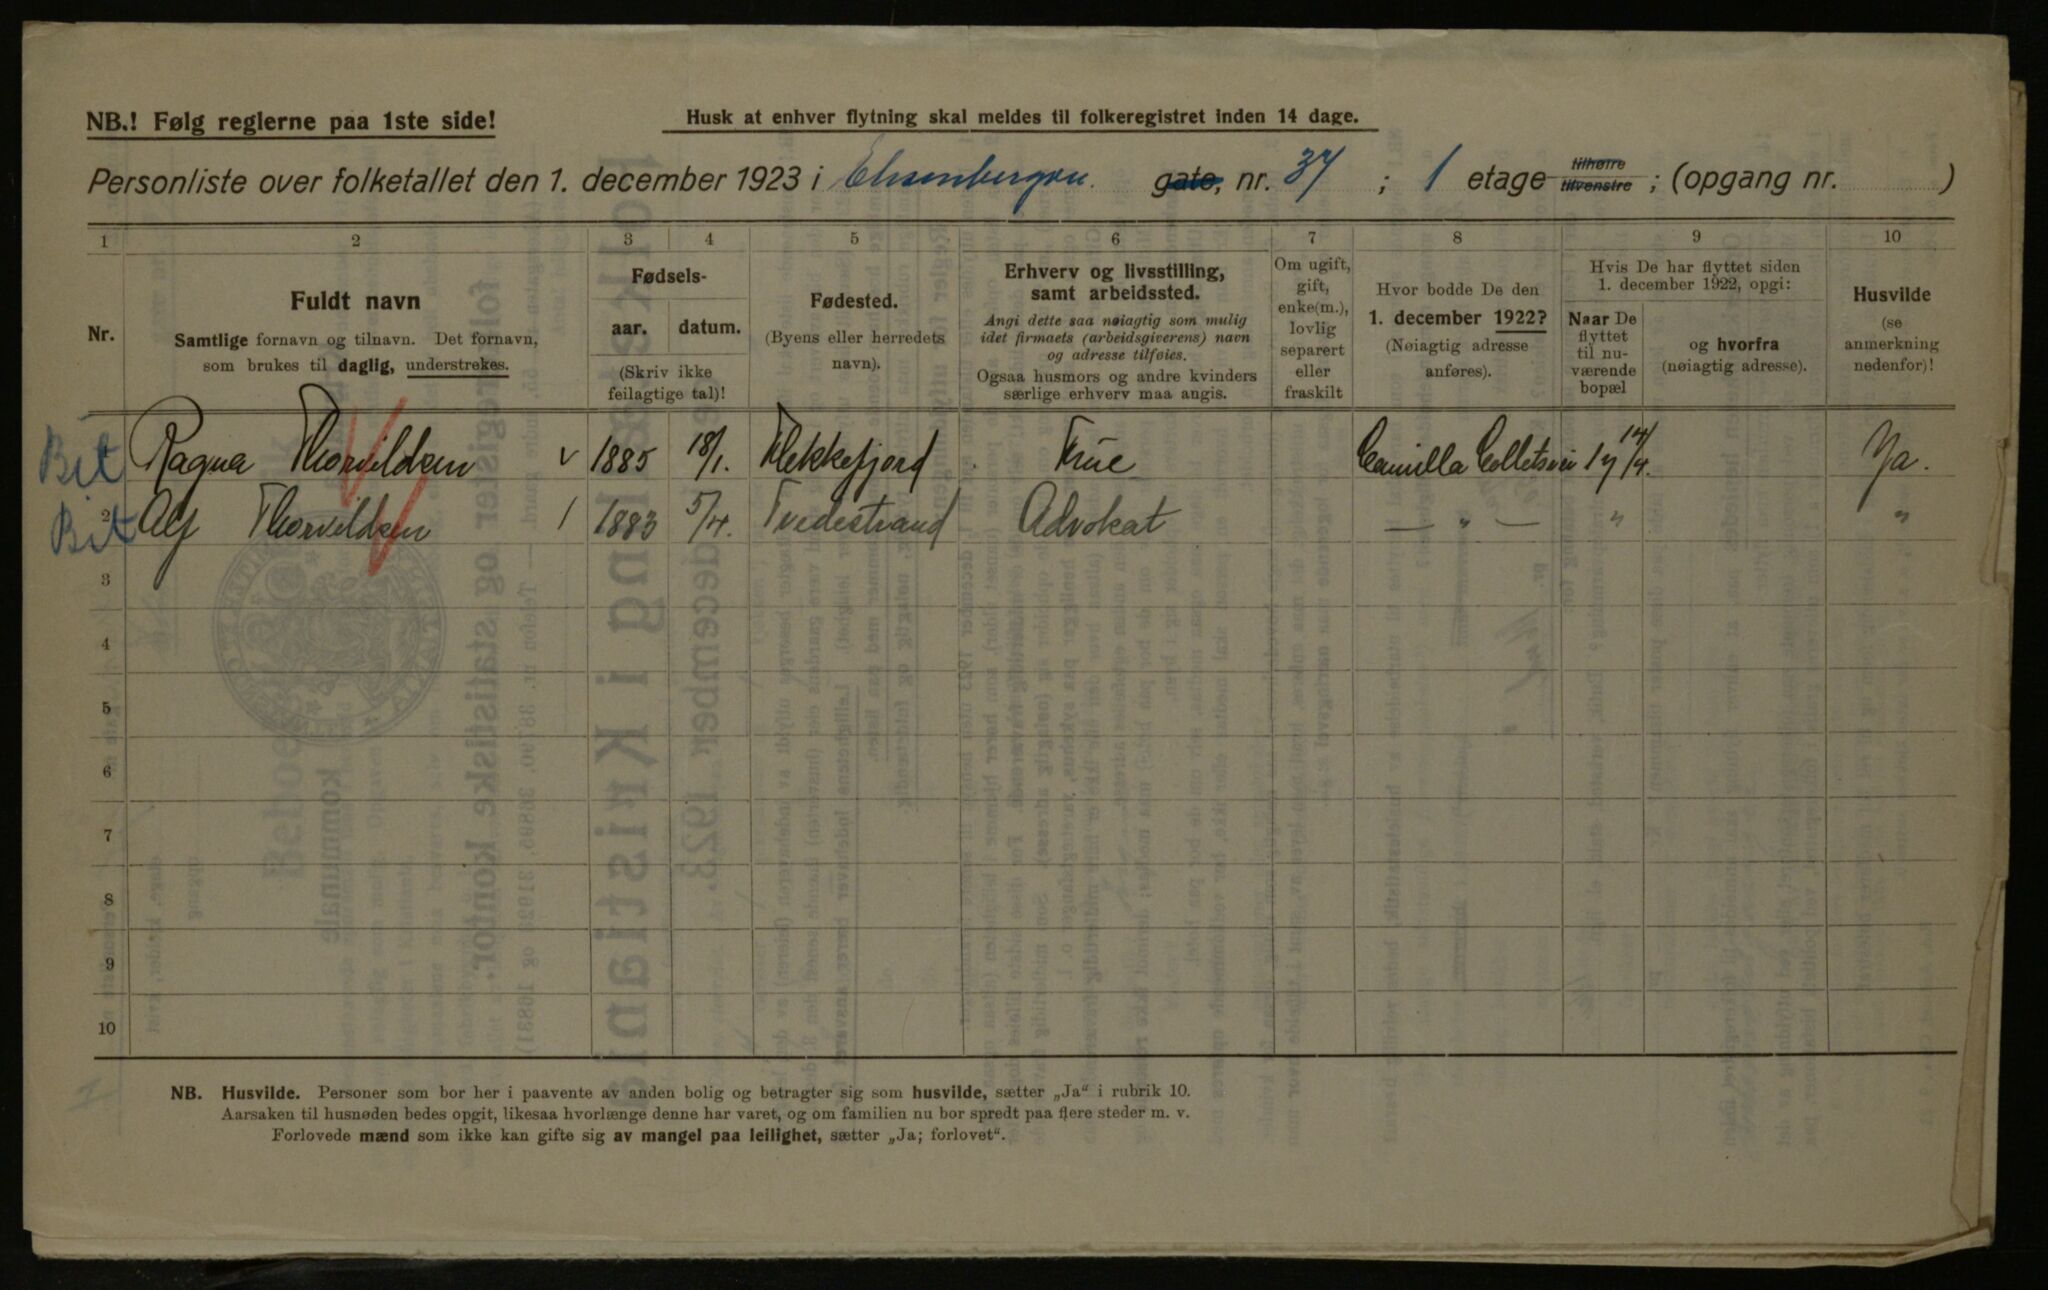 NB.! Følg reglerne paa 1ste side!
Husk at enhver flytning skal meldes til folkeregistret inden 14 dage.
Personliste over folketallet den 1. december 1923 i Elisenbergvn. gate, nr. 37 ; 1 etage tilhøire tilvenstre ; (opgang nr. )
1 2 3 4 5 6 7 8 9 10
Nr.
Fuldt navn
Samtlige fornavn og tilnavn. Det fornavn,
som brukes til daglig, understrekes.
Fødsels-
aar. datum.
(Skriv ikke
feilagtige tal)!
Fødested.
(Byens eller herredets
navn).
Erhverv og livsstilling,
samt arbeidssted.
Angi dette saa nøiagtig som mulig
idet firmaets (arbeidsgiverens) navn
og adresse tilføies.
Ogsaa husmors og andre kvinders
særlige erhverv maa angis.
Om ugift,
gift,
enke(m.),
lovlig
separert
eller
fraskilt
Hvor bodde De den
1. december 1922?
(Nøiagtig adresse
anføres).
Hvis De har flyttet siden
1. december 1922, opgi:
Naar De
flyttet
til nu-
værende
bopæl
og hvorfra
(nøiagtig adresse).
Husvilde
(se
anmerkning
nedenfor)!
Bit Ragna Thorvildsen v 1885 18/1. Flekkefjord Frue Camilla Colletsvei 19 14/4. Ja.
Bit 2 Alf Thorvildsen 1 1883 5/4. Tvedestrand Advokat — " — " "
3
4
5
6
7
8
9
10
NB. Husvilde. Personer som bor her i paavente av anden bolig og betragter sig som husvilde, sætter „Ja“ i rubrik 10.
Aarsaken til husnøden bedes opgit, likesaa hvorlænge denne har varet, og om familien nu bor spredt paa flere steder m. v.
Forlovede mænd som ikke kan gifte sig av mangel paa leilighet, sætter „Ja; forlovet“.